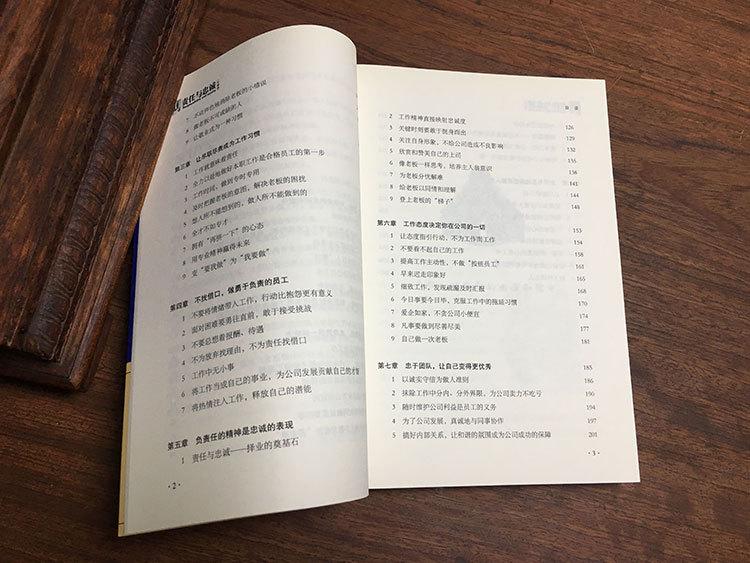 责任与忠诚
7 不达种色地消除老板的小情误
8 做老板不可或缺的人
9 让敬业成为一种习惯
第三章 让尽职尽责成为工作习惯
1 工作就意味着责任
2 全力以赴地做好本职工作是合格员工的第一步
3 工作时间，做到专时专用
4 及时把握老板的意图，解决老板的困扰
5 想人所不能想到的，做人所不能做到的
6 全才不如专才
7 拥有“再拼一下”的心态
8 用专业精神赢得未来
9 变“要我做”为“我要做”
第四章 不找借口，做勇于负责的员工
1 不要将情绪带入工作，行动比抱怨更有意义
2 面对困难要勇往直前，敢于接受挑战
3 不要总想着报酬、待遇
4 不为放弃找理由，不为责任找借口
5 工作中无小事
6 将工作当成自己的事业，为公司发展贡献自己的才智
7 将热情注入工作，释放自己的潜能
第五章 负责任的精神是忠诚的表现
1 责任与忠诚——择业的奠基石
·2·
目 录
2 工作精神直接映射忠诚度 126
3 关键时刻要敢于挺身而出 129
4 关注自身形象，不给公司造成不良影响 132
5 欣赏和赞美自己的上司 135
6 像老板一样思考，培养主人翁意识 138
7 为老板分忧解难 141
8 给老板以同情和理解 144
9 登上老板的“梯子” 148
第六章 工作态度决定你在公司的一切 153
1 让态度指引行动，不为工作而工作 154
2 不要看不起自己的工作 158
3 提高工作主动性，不做“按钮员工” 161
4 早来迟走印象好 165
5 细致工作，发现疏漏及时汇报 168
6 今日事要今日毕，克服工作中的拖延习惯 170
7 爱企如家，不贪公司小便宜 174
8 凡事要做到尽善尽美 177
9 自己做一次老板 181
第七章 忠于团队，让自己变得更优秀 185
1 以诚实守信为做人准则 186
2 抹除工作中分内、分外界限，为公司卖力不吃亏 190
3 随时维护公司利益是员工的义务 194
4 为了公司发展，真诚地与同事协作 197
5 搞好内部关系，让和谐的氛围成为公司成功的保障 201
·3·